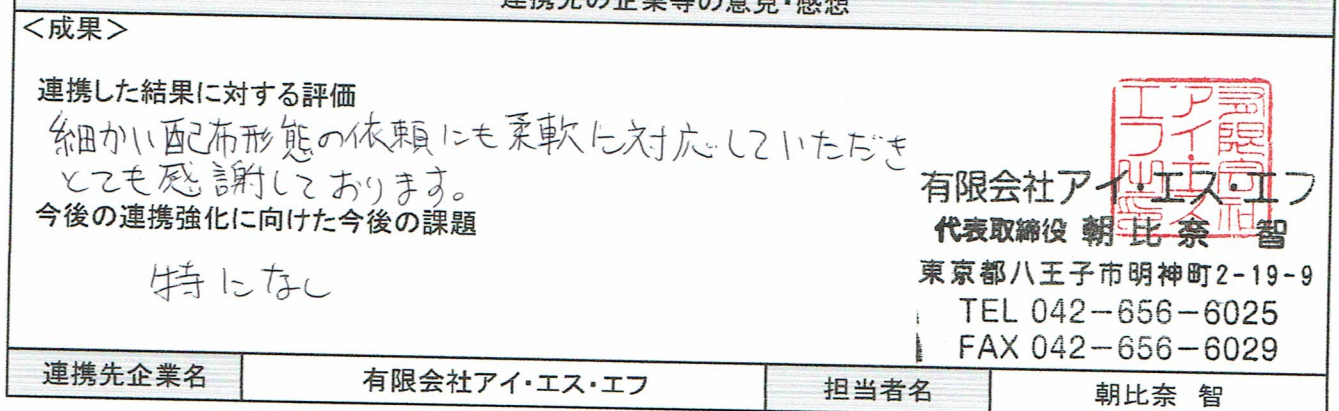 連携先の企業等の意見・感想
<成果>
連携した結果に対する評価
細かい配布形態の依頼にも柔軟に対応していただき
とても感謝しております。
今後の連携強化に向けた今後の課題
特になし
有限会社アイ・エス・エフ
代表取締役 朝比奈 智
東京都八王子市明神町2-19-9
TEL 042-656-6025
FAX 042-656-6029
連携先企業名 有限会社アイ・エス・エフ 担当者名 朝比奈 智